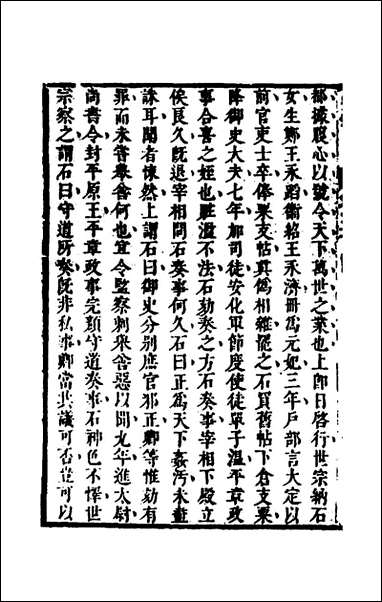 都據腹心以號令天下萬世之業也上卽日啓行世宗納石
女生鄭王永蹈衞紹王永濟冊爲元妃三年戸部言大定以
前官吏士卒俸粟支帖眞爲相雜罷之石買舊帖下倉支粟
降御史大夫七年加司徒安化軍節度使徒單子溫平章政
事合喜之姪也贓濫不法石劾奏之方石奏事宰相下殿立
俟良久旣退宰相問石奏事何久石曰正爲天下姦汚未盡
誅耳聞者悚然上謂石曰御史分别庶官邪正卿等惟劾有
罪而未嘗舉善何也宜令監察刺舉善惡以聞九年進太尉
尚書令封平原王平章政事完顔守道奏事石神色不懌世
宗察之謂石曰守道所奏旣非私事卿當共議可否豈可以